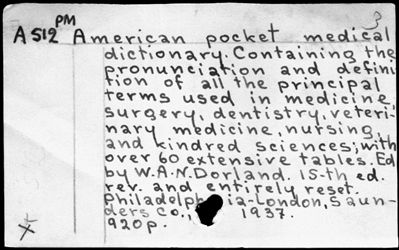 3
PM
A512 American pocket medical
dictionary. Containing the
pronunciation and defini
tion of all the principal
terms used in medicine,
surgery, dentistry, veteri-
nary medicine, nursing,
and kindred sciences; with
over 60 extensive tables. Ed
by W.A.N.Dorland. 15-th ed.
rev. and entirely reset.
Philadelphia-London, Saun-
ders Co., 1937.
920p.